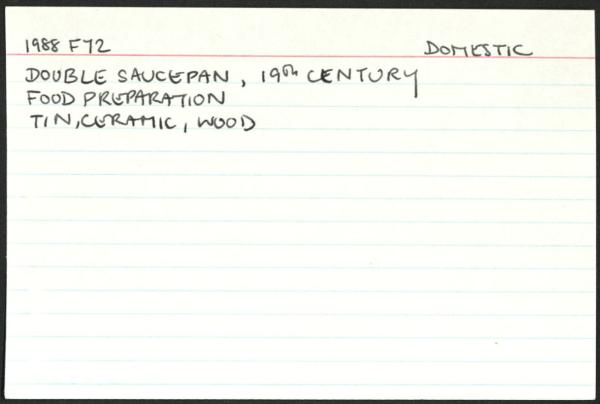 1988 F72 DOMESTIC
DOUBLE SAUCEPAN, 19th CENTURY
FOOD PREPARATION
TIN, CERAMIC, WOOD